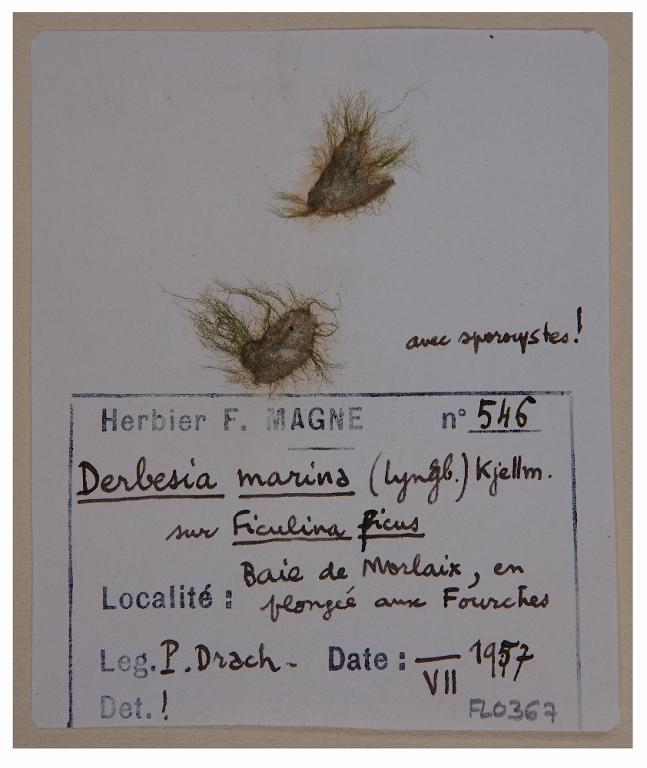 avec sporocystes!
Herbier F. MAGNE n° 546
Derbesia marina (Lyngb.) Kjellm.
sur Ficulina ficus
Baie de Morlaix, en
Localité : plongée aux Fourches
Leg. P. Drach - Date : — VII 1957
Det. !
FL0367